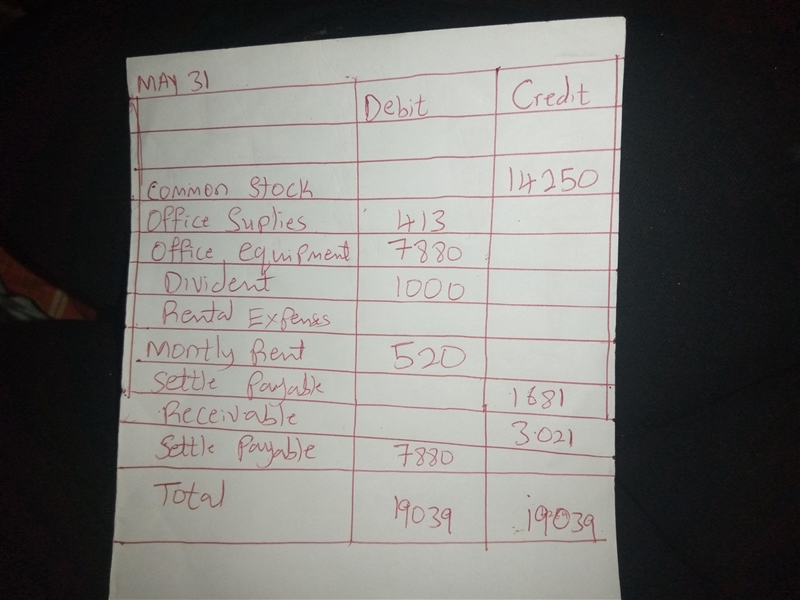 MAY 31
Debit Credit
Common Stock 14250
Office Suplies 413
Office equipment 7880
Divident 1000
Rental Expenss
Montly Rent 520
Settle Payable 1681
Receivable 3.021
Settle Payable 7880
Total 19039 19039